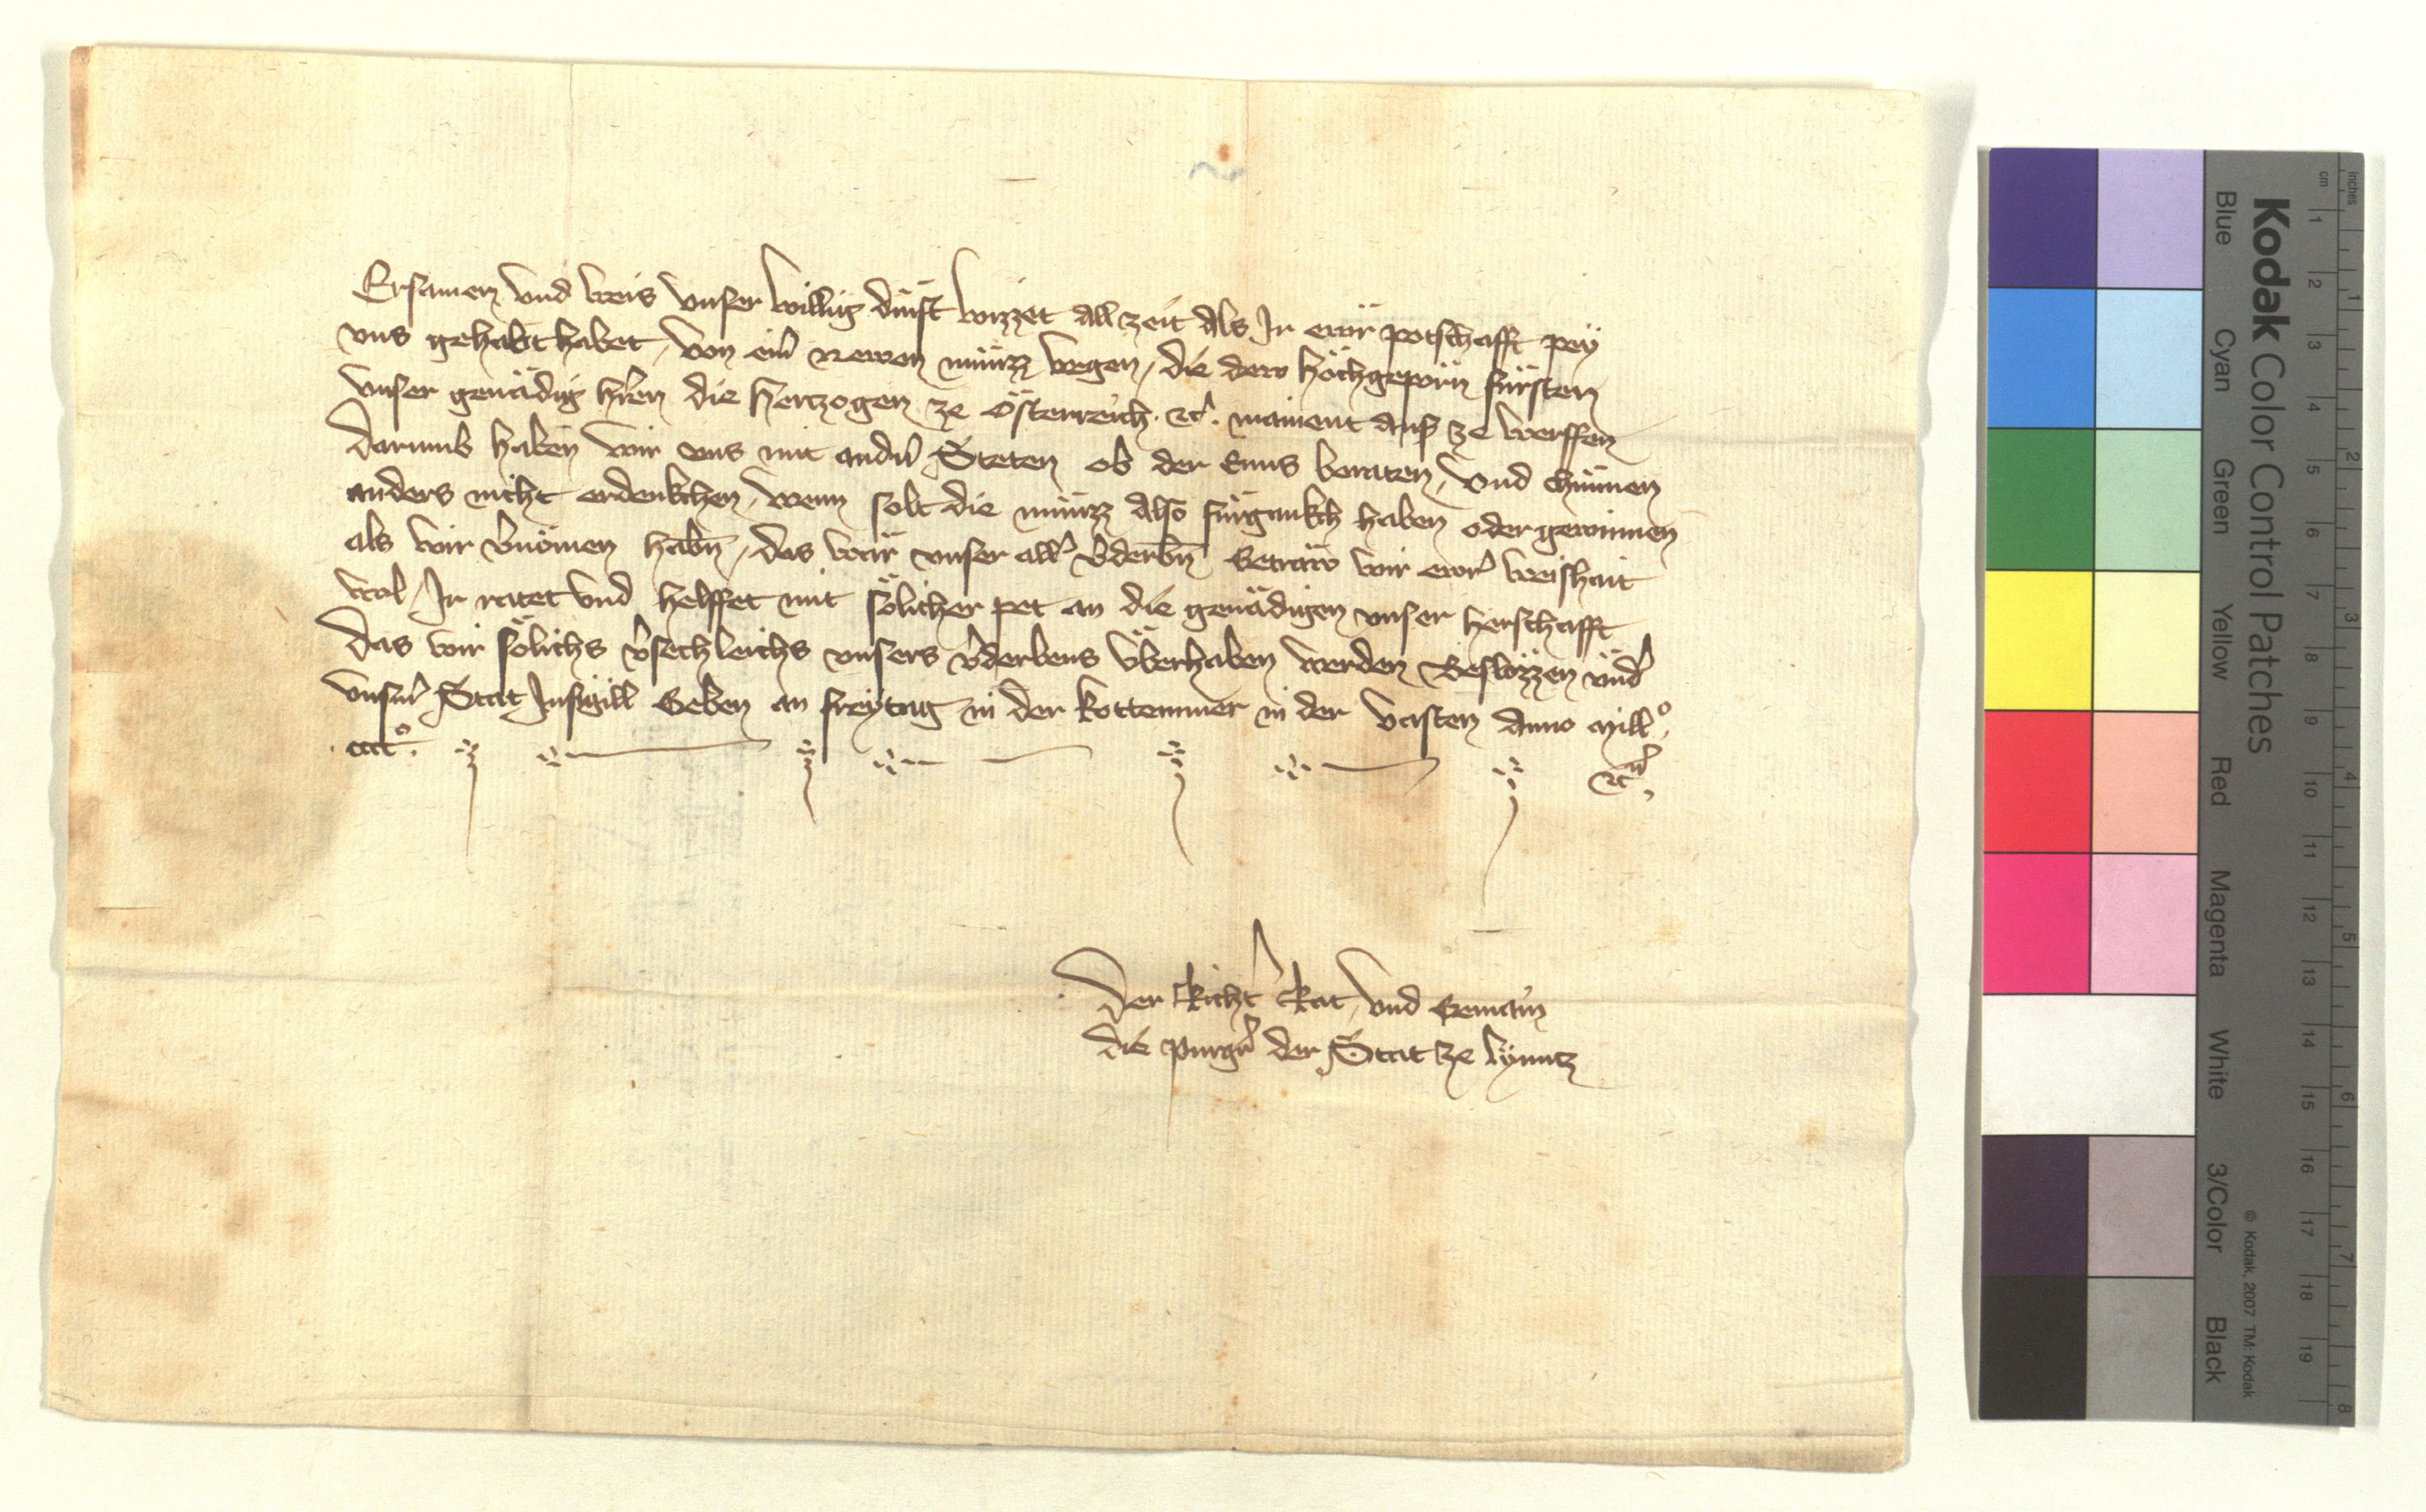 Ersamen vnd weis vnser willig dinst wizzet allzeit Als Ir ewr potschafft pey
vns gehabt habet, von eim̄ newen münzz wegen, die dew hochgeporn fürsten
vnser genädig hr̄en die Herczogen ze Österreich etc. mainent auf ze werffen
darumb haben wir vns mit andn̄ Steten ob der Enns beraten, vnd chünnen
anders nicht erdenkchen, wenn solt die münzz also fürgankch haben oder gewinnen
als wir v̄nomen habn̄, das wär vnser all̄ v̄derbn̄ Getraw wir ewr̄ weishait
wol, Ir ratet vnd helffet mit sölicher pet an die genädigen vnser Herschafft
das wir sölichs v̄sechleichs vnsers v̄derbens vberhaben werden Beslozzen vnd̄
vnsm̄ Stat Insigill Geben an freytag in der kottemmer in der vasten Anno Mill°.
cccc°. etc.
Der Richt̄ Rat, vnd Gemain
die purgr̄ der Stat ze Lynntz
Kodak Color Control Patches
Blue Cyan Green Yellow Red Magenta White 3/Color Black
© Kodak, 2007 TM: Kodak
cm 1 2 3 4 5 6 7 8 9 10 11 12 13 14 15 16 17 18 19
inches 1 2 3 4 5 6 7 8